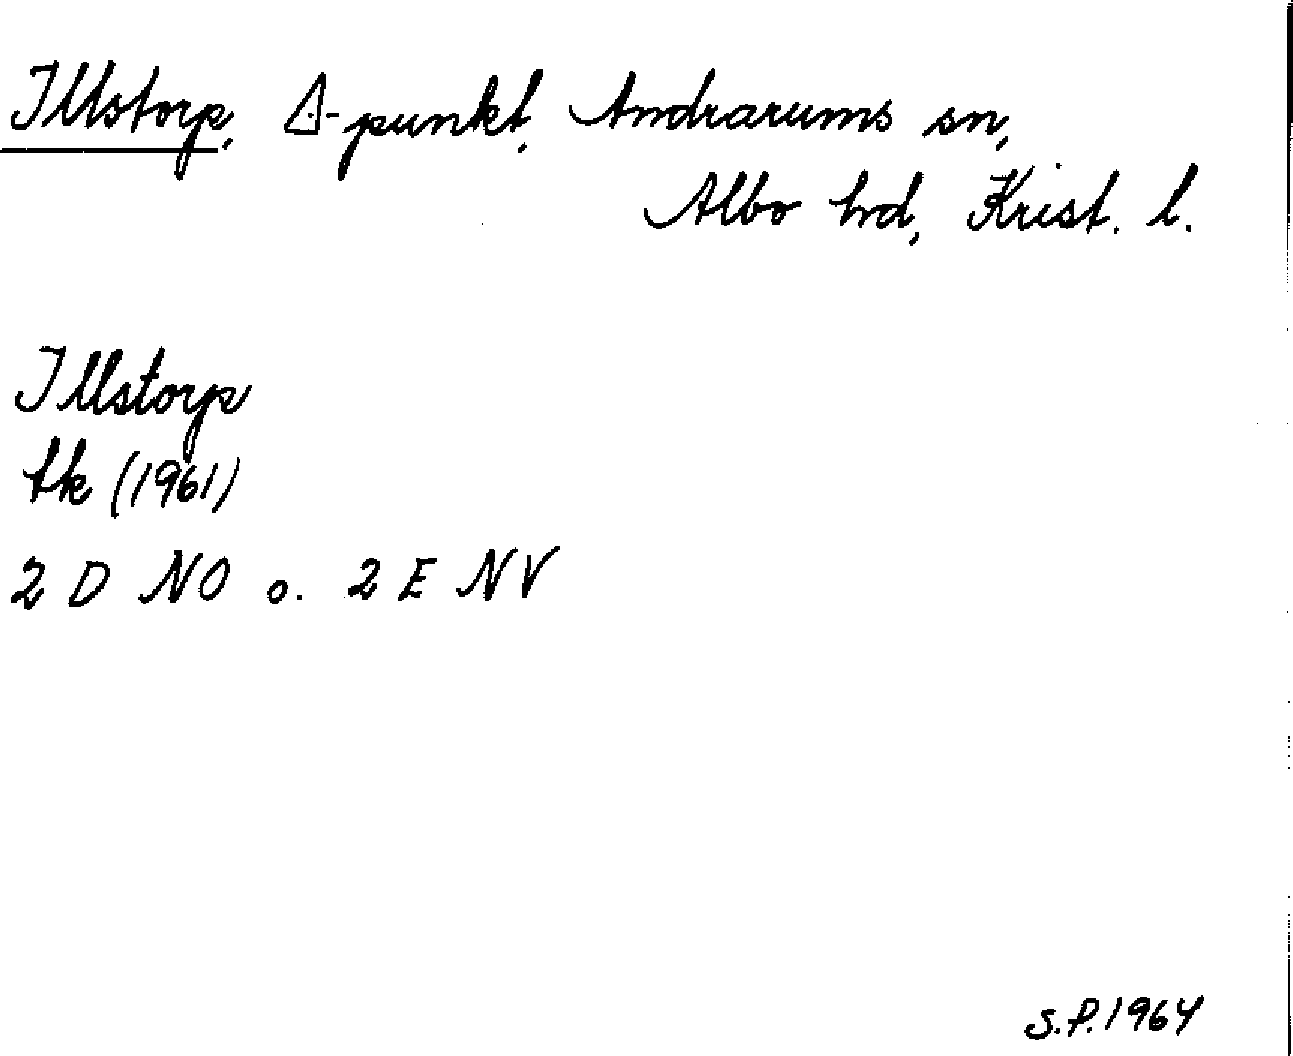 Illstorp, △-punkt, Andrarums sn,
Albo hd, Krist. l.
Illstorp
tk (1961)
2 D NO o. 2 E NV
S.P. 1964